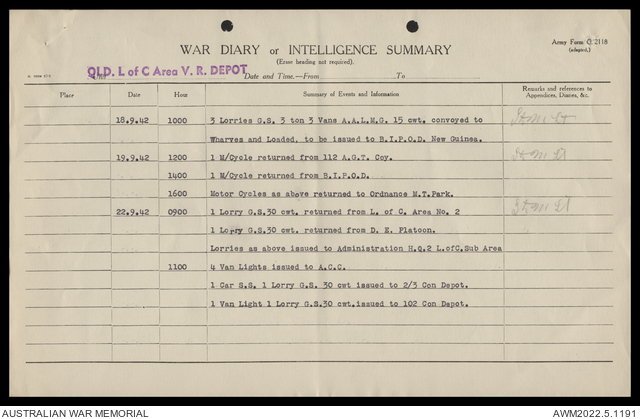 WAR DIARY or INTELLIGENCE SUMMARY
Army Form C. 2118
(adapted.)
(Erase heading not required).
QLD. L of C Area V. R. DEPOT
Date and Time.—From To
Place Date Hour Summary of Events and Information Remarks and references to Appendices, Diaries, &c.
18.9.42 1000 3 Lorries G.S. 3 ton 3 Vans A.A.L.M.G. 15 cwt. convoyed to
Wharves and Loaded, to be issued to B.I.P.O.D. New Guinea.
19.9.42 1200 1 M/Cycle returned from 112 A.G.T. Coy.
1400 1 M/Cycle returned from B.I.P.O.D.
1600 Motor Cycles as above returned to Ordnance M.T.Park.
22.9.42 0900 1 Lorry G.S.30 cwt. returned from L. of C. Area No. 2
1 Lorry G.S.30 cwt. returned from D. E. Platoon.
Lorries as above issued to Administration H.Q.2 L.ofC.Sub Area
1100 4 Van Lights issued to A.C.C.
1 Car S.S. 1 Lorry G.S. 30 cwt issued to 2/3 Con Depot.
1 Van Light 1 Lorry G.S.30 cwt.issued to 102 Con Depot.
AUSTRALIAN WAR MEMORIAL AWM2022.5.1191